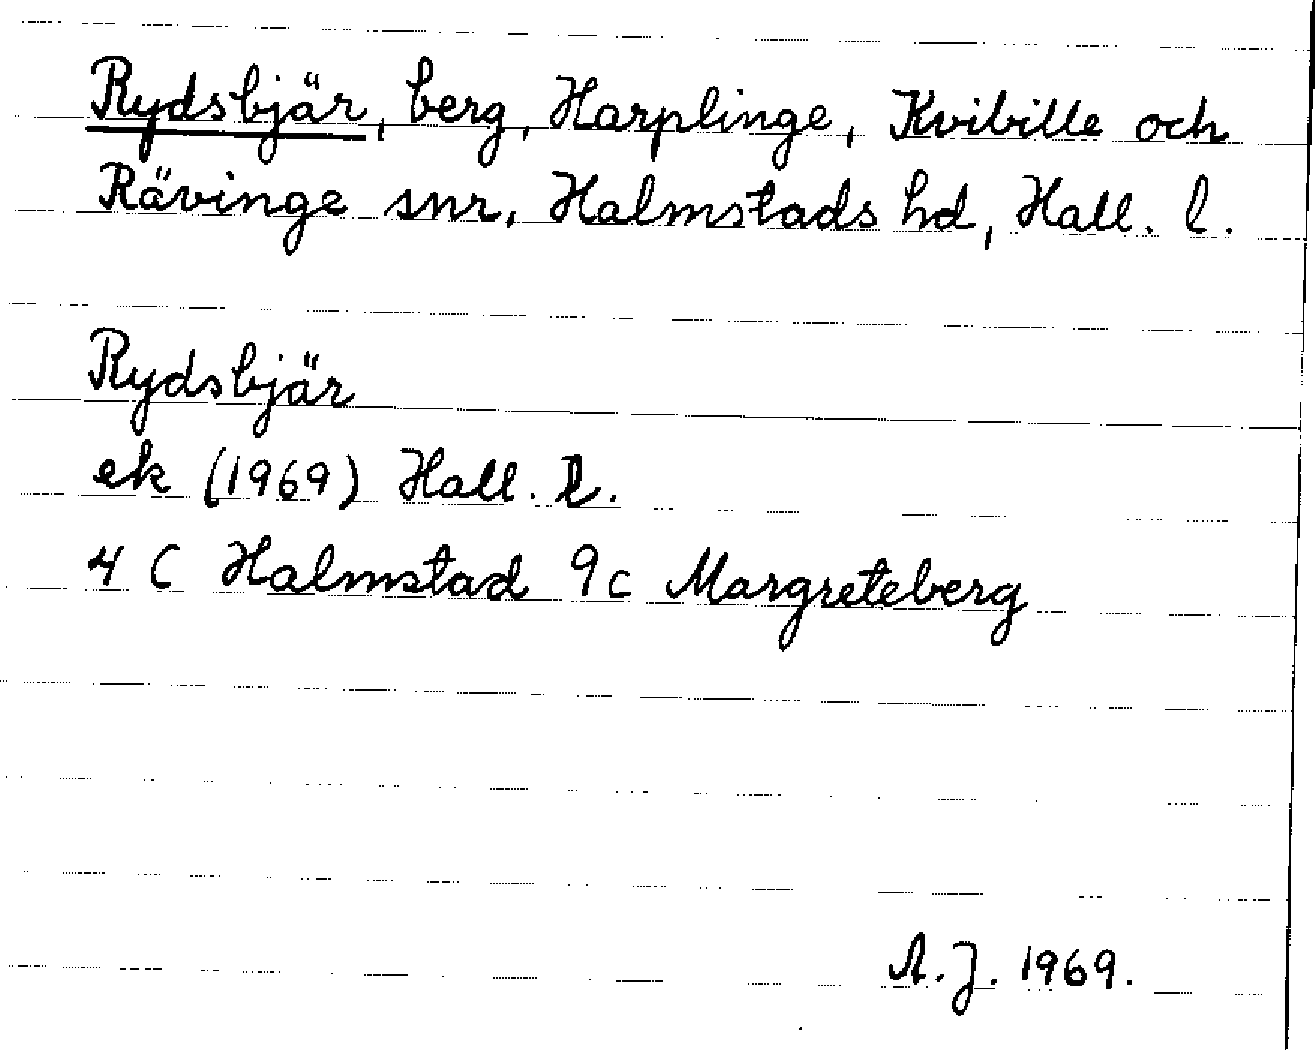 Rydsbjär, berg, Harplinge, Kvibille och
Rävinge snr, Halmstads hd, Hall. l.
Rydsbjär
ek (1969) Hall. l.
4 C Halmstad 9c Margreteberg
A.J. 1969.